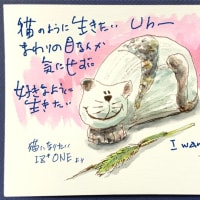 猫のように生きたい Uh—
まわりの目なんか
気にせず。
好きなように
生きたい
猫になりたい
IZ*ONE より
I wan